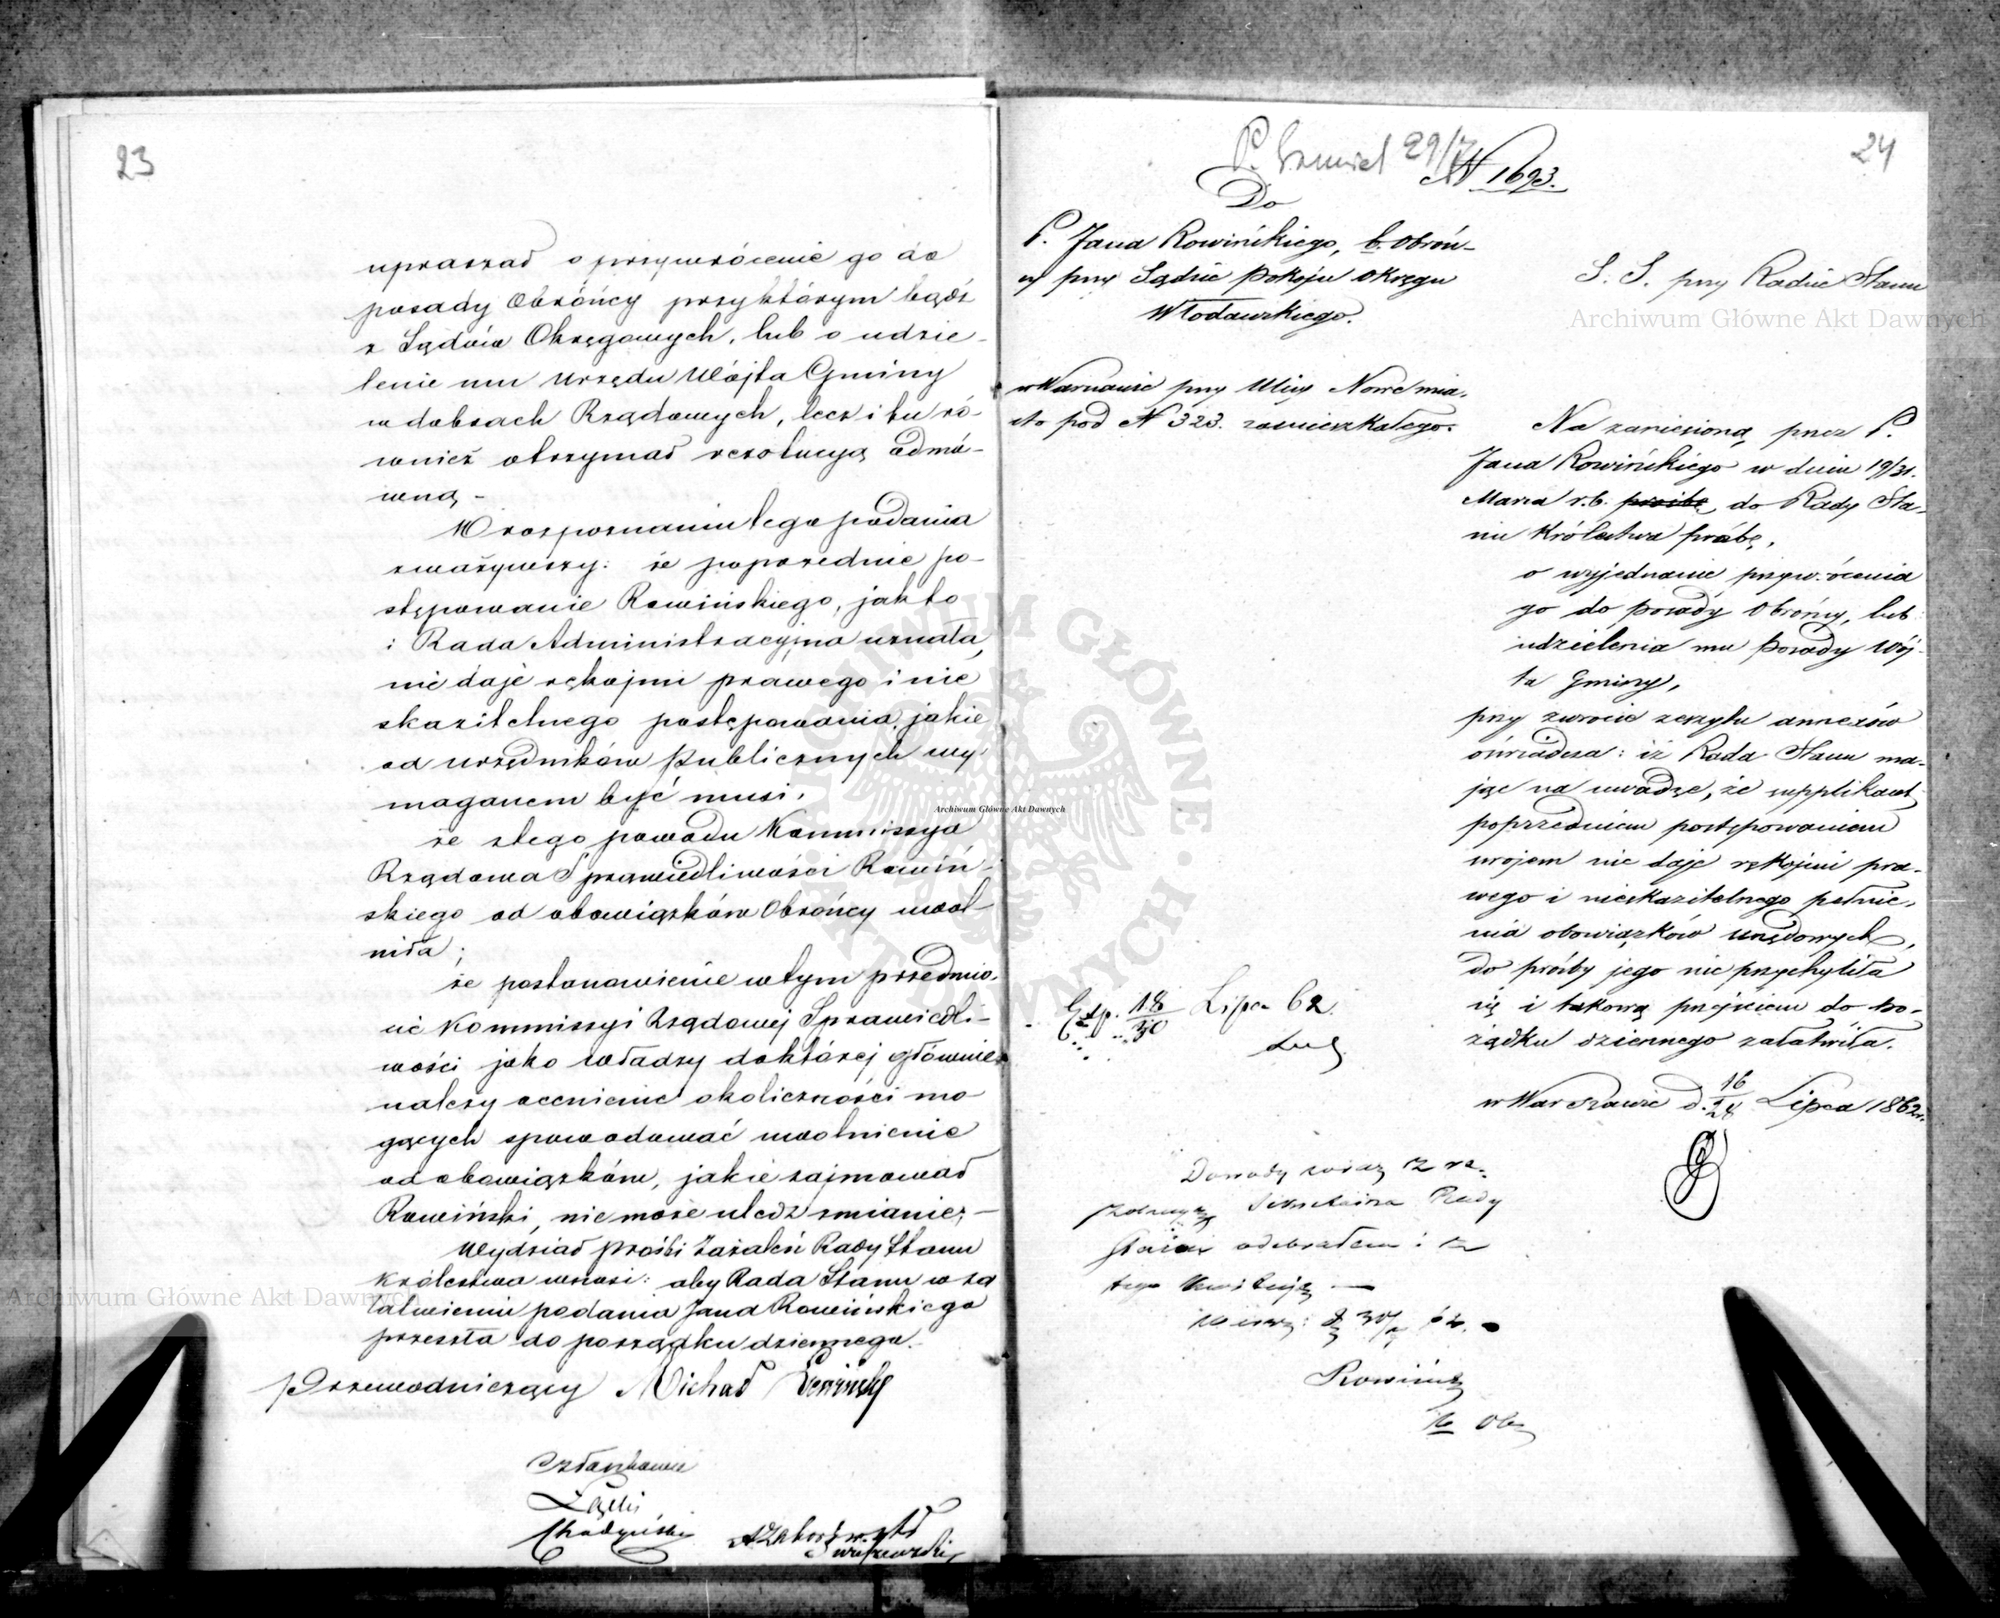 23
upraszał o przywrócenie go do
posady Obrońcy przy którym bądź
z Sądów Okręgowych, lub o udzie-
lenie mu Urzędu Wójta Gminy
w dobrach Rządowych, lecz i tu ró-
wnież otrzymał rezolucyą odmó-
wną -
W rozpoznaniu tego podania
zważywszy: że poprzednie po-
stępowanie Rowińskiego, jak to
i Rada Administracyjna uznała,
nie daje rękojmi prawego i nie
skazitelnego postępowania, jakie
od urzędników publicznych wy-
maganem być musi.
że z tego powodu Kommissya
Rządowa Sprawiedliwości Rowiń-
skiego od obowiązków Obrońcy uwol-
niła;
że postanowienie w tym przedmio-
cie Kommissyi Rządowej Sprawiedli-
wości jako władzy do której głównie
należy ocenienie okoliczności mo-
gących spowodować uwolnienie
od obowiązków, jakie zajmował
Rowiński, nie może uledz zmianie; -
Wydział próśb i Zażaleń Rady Stanu
Królestwa wnosi: aby Rada Stanu w za
łatwieniu podania Jana Rowińskiego
przeszła do porządku dziennego.
Przewodniczący Michał
Członkowie
Łęcki
Chądzyński
24
P. 29/7
N 1693.
Do
P. Jana Rowińskiego, b. Obroń-
cy przy Sądzie Pokoju Okręgu
Włodawskiego.
w Warszawie przy Ulicy Nowe mia-
sto pod N 323. zamieszkałego.
S. S. przy Radzie Stanu
Na zaniesioną przez P.
Jana Rowińskiego w dniu 19/31.
Marca r.b. prośbę do Rady Sta-
nu Królestwa prośbę,
o wyjednanie przywrócenia
go do posady Obrońcy, lub
udzielenia mu Posady Wój-
ta Gminy,
przy zwrocie zeszytu annexów
oświadcza: iż Rada Stanu ma-
jąc na uwadze, że supplikant
poprzedniem postępowaniem
swojem nie daje rękojmi pra-
wego i nieskazitelnego pełnie-
nia obowiązków urzędowych,
do prośby jego nie przychyliła
się i takową przejściem do po-
rządku dziennego załatwiła.
w Warszawie d. 16/28 Lipca 1862 r.
Exp. 18/30 Lipca 62.
Dowody wraz z re-
zolucyą Sekretarza Rady
Stanu odebrałem i z
tego kwituję —
Rowiński
b. Ob